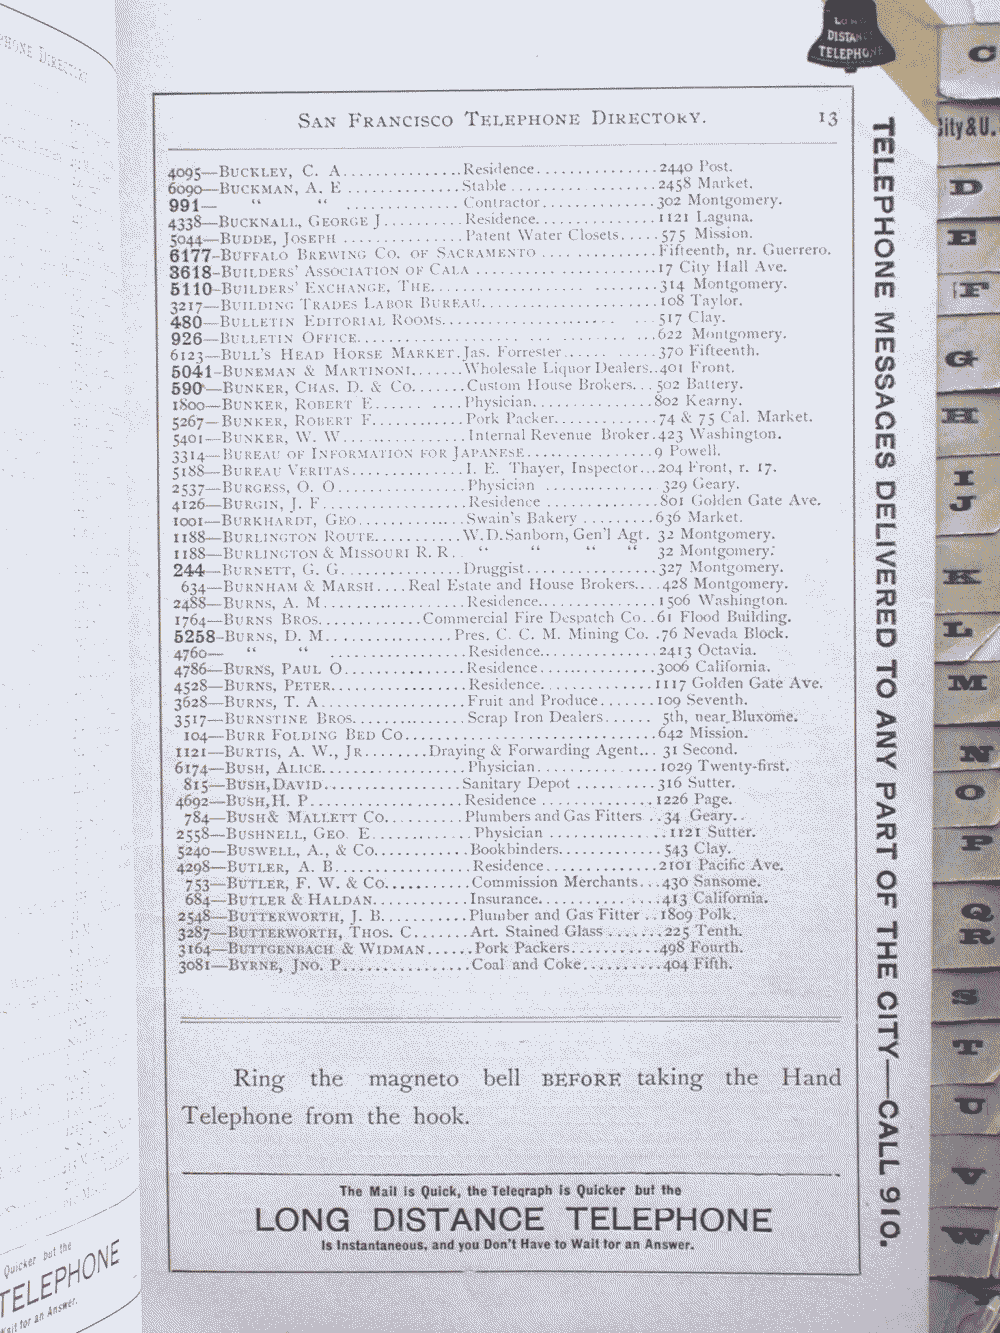 LONG
DISTANCE
TELEPHONE
SAN FRANCISCO TELEPHONE DIRECTORY. 13
4095—BUCKLEY, C. A...............Residence................2440 Post.
6090—BUCKMAN, A. E ..............Stable ..................2458 Market.
991— “ “ .............. Contractor...............302 Montgomery.
4338—BUCKNALL, GEORGE J..........Residence................1121 Laguna.
5044—BUDDE, JOSEPH ...............Patent Water Closets.....575 Mission.
6177–BUFFALO BREWING CO. OF SACRAMENTO ..............Fifteenth, nr. Guerrero.
3618–BUILDERS' ASSOCIATION OF CALA .......................17 City Hall Ave.
5110–BUILDERS' EXCHANGE, THE............................314 Montgomery.
3217—BUILDING TRADES LABOR BUREAU......................108 Taylor.
480—BULLETIN EDITORIAL ROOMS........................... 517 Clay.
926—BULLETIN OFFICE......................................622 Montgomery.
6123—BULL'S HEAD HORSE MARKET.Jas. Forrester............370 Fifteenth.
5041–BUNEMAN & MARTINONI......Wholesale Liquor Dealers..401 Front.
590—BUNKER, CHAS. D. & CO.......Custom House Brokers...502 Battery.
1800—BUNKER, ROBERT E...........Physician...............802 Kearny.
5267—BUNKER, ROBERT F...........Pork Packer.............74 & 75 Cal. Market.
5401—BUNKER, W. W................Internal Revenue Broker.423 Washington.
3314—BUREAU OF INFORMATION FOR JAPANESE................9 Powell.
5188—BUREAU VERITAS..............I. E. Thayer, Inspector...204 Front, r. 17.
2537—BURGESS, O. O................Physician .............. 329 Geary.
4126—BURGIN, J. F..................Residence ..............801 Golden Gate Ave.
1001—BURKHARDT, GEO.............Swain's Bakery .........636 Market.
1188—BURLINGTON ROUTE...........W.D.Sanborn, Gen'l Agt. 32 Montgomery.
1188—BURLINGTON & MISSOURI R. R.. “ “ “ “ 32 Montgomery.
244—BURNETT, G. G...............Druggist................327 Montgomery.
634—BURNHAM & MARSH.... Real Estate and House Brokers....428 Montgomery.
2488—BURNS, A. M..................Residence...............1506 Washington.
1764—BURNS BROS.............Commercial Fire Despatch Co..61 Flood Building.
5258–BURNS, D. M...............Pres. C. C. M. Mining Co. .76 Nevada Block.
4760— “ “ .................Residence...............2413 Octavia.
4786—BURNS, PAUL O...............Residence...............3006 California.
4528—BURNS, PETER.................Residence..............1117 Golden Gate Ave.
3628—BURNS, T. A..................Fruit and Produce.......109 Seventh.
3517—BURNSTINE BROS..............Scrap Iron Dealers...... 5th, near Bluxome.
104—BURR FOLDING BED CO...............................642 Mission.
1121—BURTIS, A. W., JR.......Draying & Forwarding Agent... 31 Second.
6174—BUSH, ALICE..................Physician...............1029 Twenty-first.
815—BUSH, DAVID.................Sanitary Depot ..........316 Sutter.
4692—BUSH, H. P...................Residence ..............1226 Page.
784—BUSH & MALLETT CO..........Plumbers and Gas Fitters ..34 Geary..
2558—BUSHNELL, GEO. E............. Physician ..............1121 Sutter.
5240—BUSWELL, A., & CO............Bookbinders.............543 Clay.
4298—BUTLER, A. B................. Residence ..............2101 Pacific Ave.
753—BUTLER, F. W. & CO...........Commission Merchants...430 Sansome.
684—BUTLER & HALDAN............Insurance...............413 California.
2548—BUTTERWORTH, J. B...........Plumber and Gas Fitter ..1809 Polk.
3287—BUTTERWORTH, THOS. C.......Art. Stained Glass .......225 Tenth.
3164—BUTTGENBACH & WIDMAN......Pork Packers...........498 Fourth.
3081—BYRNE, JNO. P................Coal and Coke..........404 Fifth.
Ring the magneto bell BEFORE taking the Hand
Telephone from the hook.
The Mail is Quick, the Telegraph is Quicker but the
LONG DISTANCE TELEPHONE
Is Instantaneous, and you Don't Have to Wait for an Answer.
TELEPHONE MESSAGES DELIVERED TO ANY PART OF THE CITY—CALL 910.
C
City & U.
D
E
F
G
H
I
J
K
L
M
N
O
P
Q
R
S
T
U
V
W
Quicker but the
TELEPHONE
Wait for an Answer.